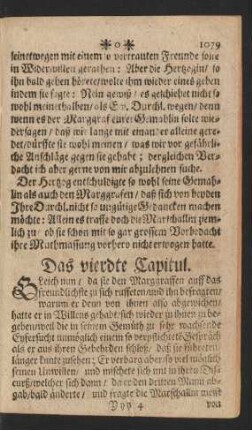 * o * 1079
seinetwegen mit einem so vertrauten Freunde solte
in Widerwillen gerathen: Aber die Hertzogin/ so
ihn bald geben hörete/ wolte ihm wieder eines geben
indem sie sagte: Nein gewiß/ es geschiehet nicht so
wohl meinethalben/ als Ew. Durchl. wegen/ denn
wenn es der Marggraf eurer Gemahlin solte wie-
dersagen/ daß wir lange mit einander alleine gere-
det/ dürffte sie wohl meinen/ was wir vor gefährli-
che Anschläge gegen sie gehabt; dergleichen Ver-
dacht ich aber gerne von mir abzulehnen suche.
Der Hertzog entschuldigte so wohl seine Gemah-
lin als auch den Marggraffen/ daß sich von beyden
Ihre Durchl. nicht so ungütige Gedancken machen
möchte: Allein es traffe doch die Marschallin ziem-
lich zu/ ob sie schon mit so gar grossem Vorbedacht
ihre Muthmassung vorhero nicht erwogen hatte.
Das vierdte Capitul.
Gleich nun/ da sie den Marggraffen auff das
freundlichste zu sich ruffeten/ und ihn befragten
warum er denn von ihnen also abgewichen
hatte er in Willens gehabt/ sich wieder zu ihnen zu be-
geben/ weil die in seinem Gemüth zu sehr wachsende
Eyfersucht unmöglich einem so verpflichtete Gespräch
als er aus ihren Gebehrden schloß/ daß sie führeten
länger kunte zusehen: Er verbarg aber so viel möglich
seinen Unwillen/ und mischete sich mit in ihren Dis-
curs/ welcher sich dann/ da er den dritten Mann ab-
gab/ bald änderte/ und fragte die Marschallin nicht
Yyy 4 von